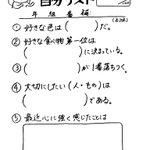 自分テスト
年 組 番 名前
① 好きな色は
(　　　)だ。
② 好きな食べ物 第一位は
(　　　)に決まっている。
③ (　　　)が1番落ちつく。
④ 大切にしたい(人・もの)は
(　　　)である。
⑤ 最近心に強く感じたことは